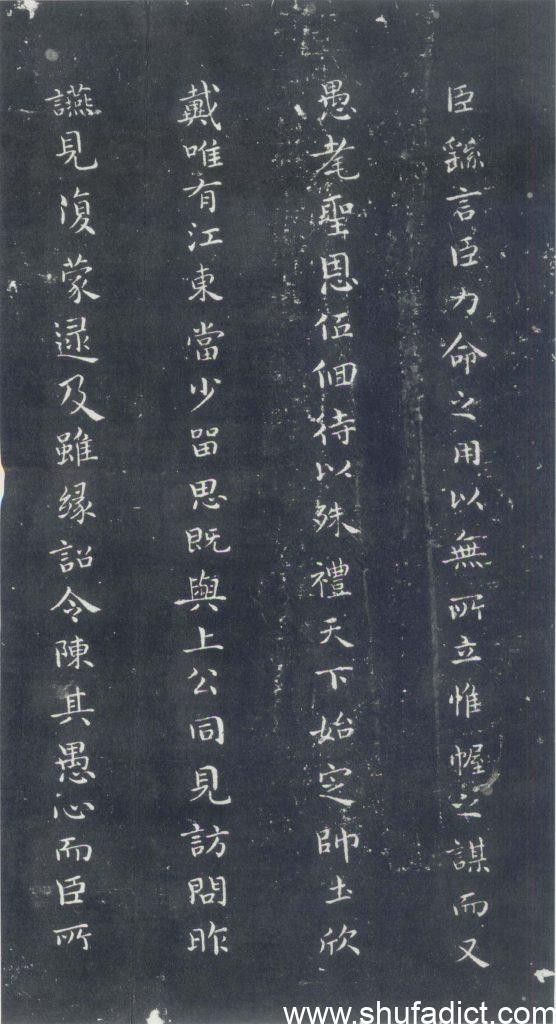 臣繇言臣力命之用以無所立惟幄之謀而又
愚耄聖恩伍佪待以殊禮天下始定帥土欣
戴唯有江東當少留思既與上公同見訪問昨
讌見復蒙逮及雖緣詔令陳其愚心而臣所
www.shufadict.com